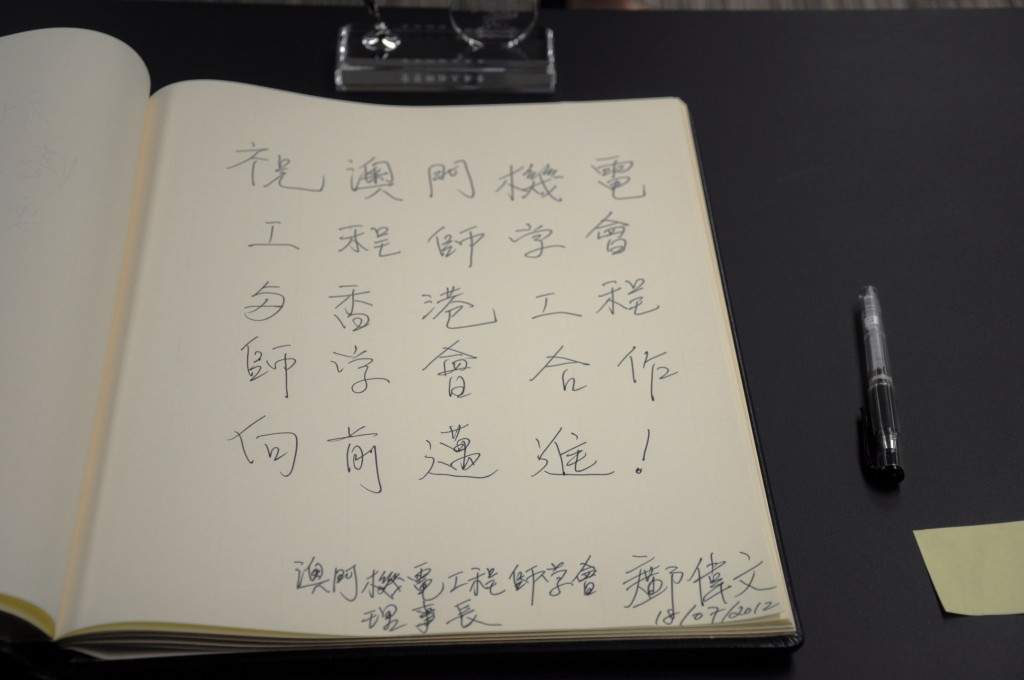 祝澳門機電
工程師学會
与香港工程
師学會合作
向前邁進！
澳門機電工程師学會 鄺偉文
理事長 18/07/2012